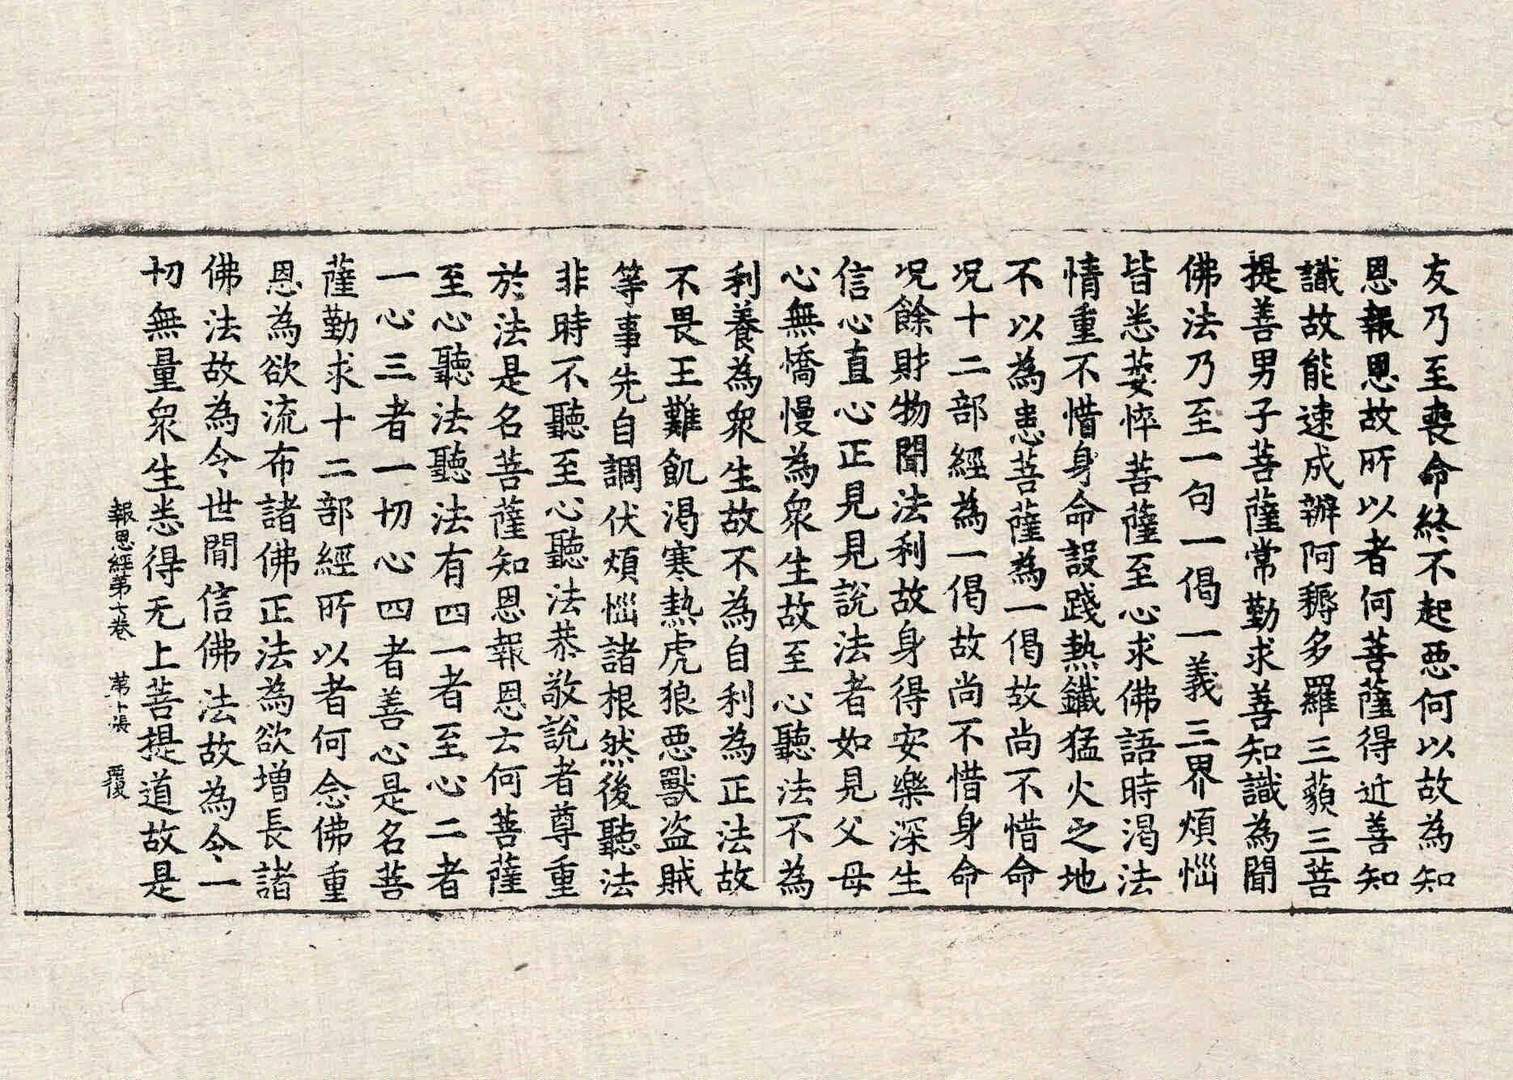 友乃至喪命終不起惡何以故為知
恩報恩故所以者何菩薩得近善知
識故能速成辦阿耨多羅三藐三菩
提善男子菩薩常勤求善知識為聞
佛法乃至一句一偈一義三界煩惱
皆悉萎悴菩薩至心求佛語時渴法
情重不惜身命設踐熱鐵猛火之地
不以為患菩薩為一偈故尚不惜命
況十二部經為一偈故尚不惜身命
況餘財物聞法利故身得安樂深生
信心直心正見見說法者如見父母
心無憍慢為眾生故至心聽法不為
利養為眾生故不為自利為正法故
不畏王難飢渴寒熱虎狼惡獸盜賊
等事先自調伏煩惱諸根然後聽法
非時不聽至心聽法恭敬說者尊重
於法是名菩薩知恩報恩云何菩薩
至心聽法聽法有四一者至心二者
一心三者一切心四者善心是名菩
薩勤求十二部經所以者何念佛重
恩為欲流布諸佛正法為欲增長諸
佛法故為令世間信佛法故為令一
切無量眾生悉得无上菩提道故是
報恩經第七卷 第十張 覆